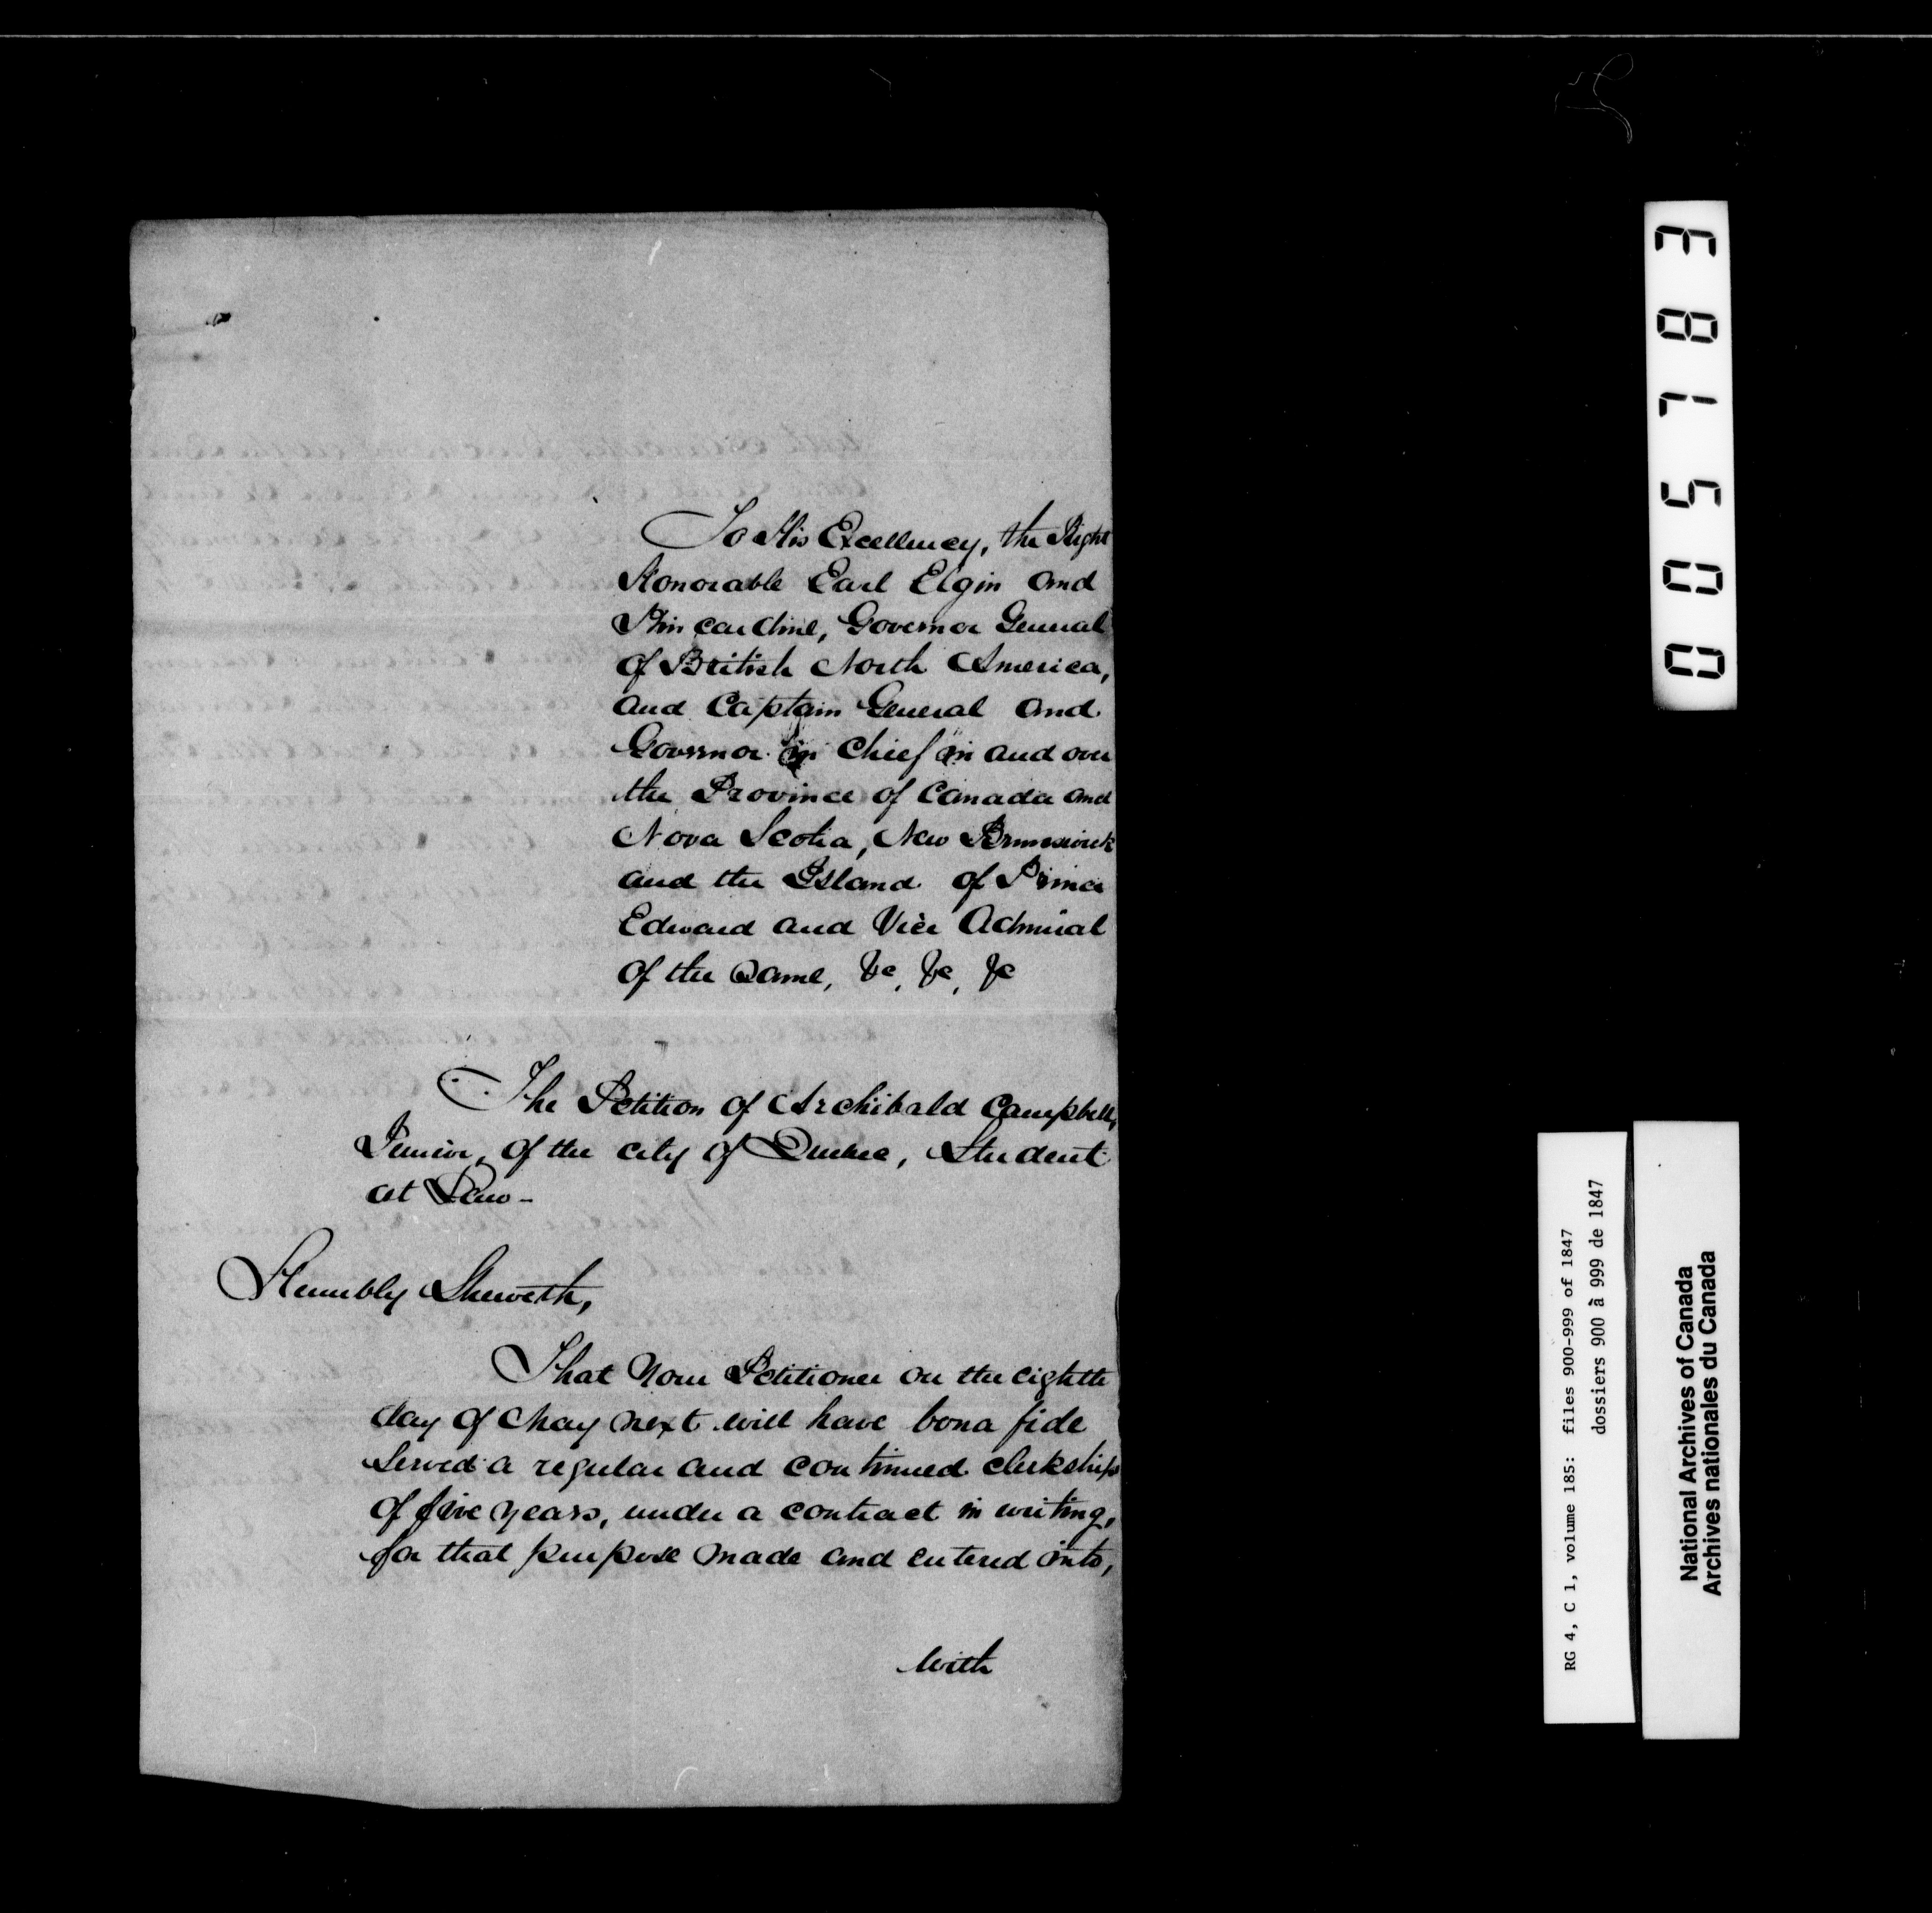 To His Excellency, the Right
Honorable Earl Elgin and
Kincardine, Governor General
of British North America,
and Captain General and
Governor in Chief in and over
the Province of Canada and
Nova Scotia, New Brunswick
and the Island of Prince
Edward and Vice Admiral
of the Same, &c, &c, &c
The Petition of Archibald Campbell,
Junior, of the city of Quebec, Student
at Law -
Humbly Sheweth,
That Your Petitioner on the eighth
day of May next will have bona fide
Served a regular and continued clerkship
of five years, under a contract in writing,
for that purpose made and entered into,
with
005783
RG 4, C 1, volume 185: files 900-999 of 1847
dossiers 900 à 999 de 1847
National Archives of Canada
Archives nationales du Canada